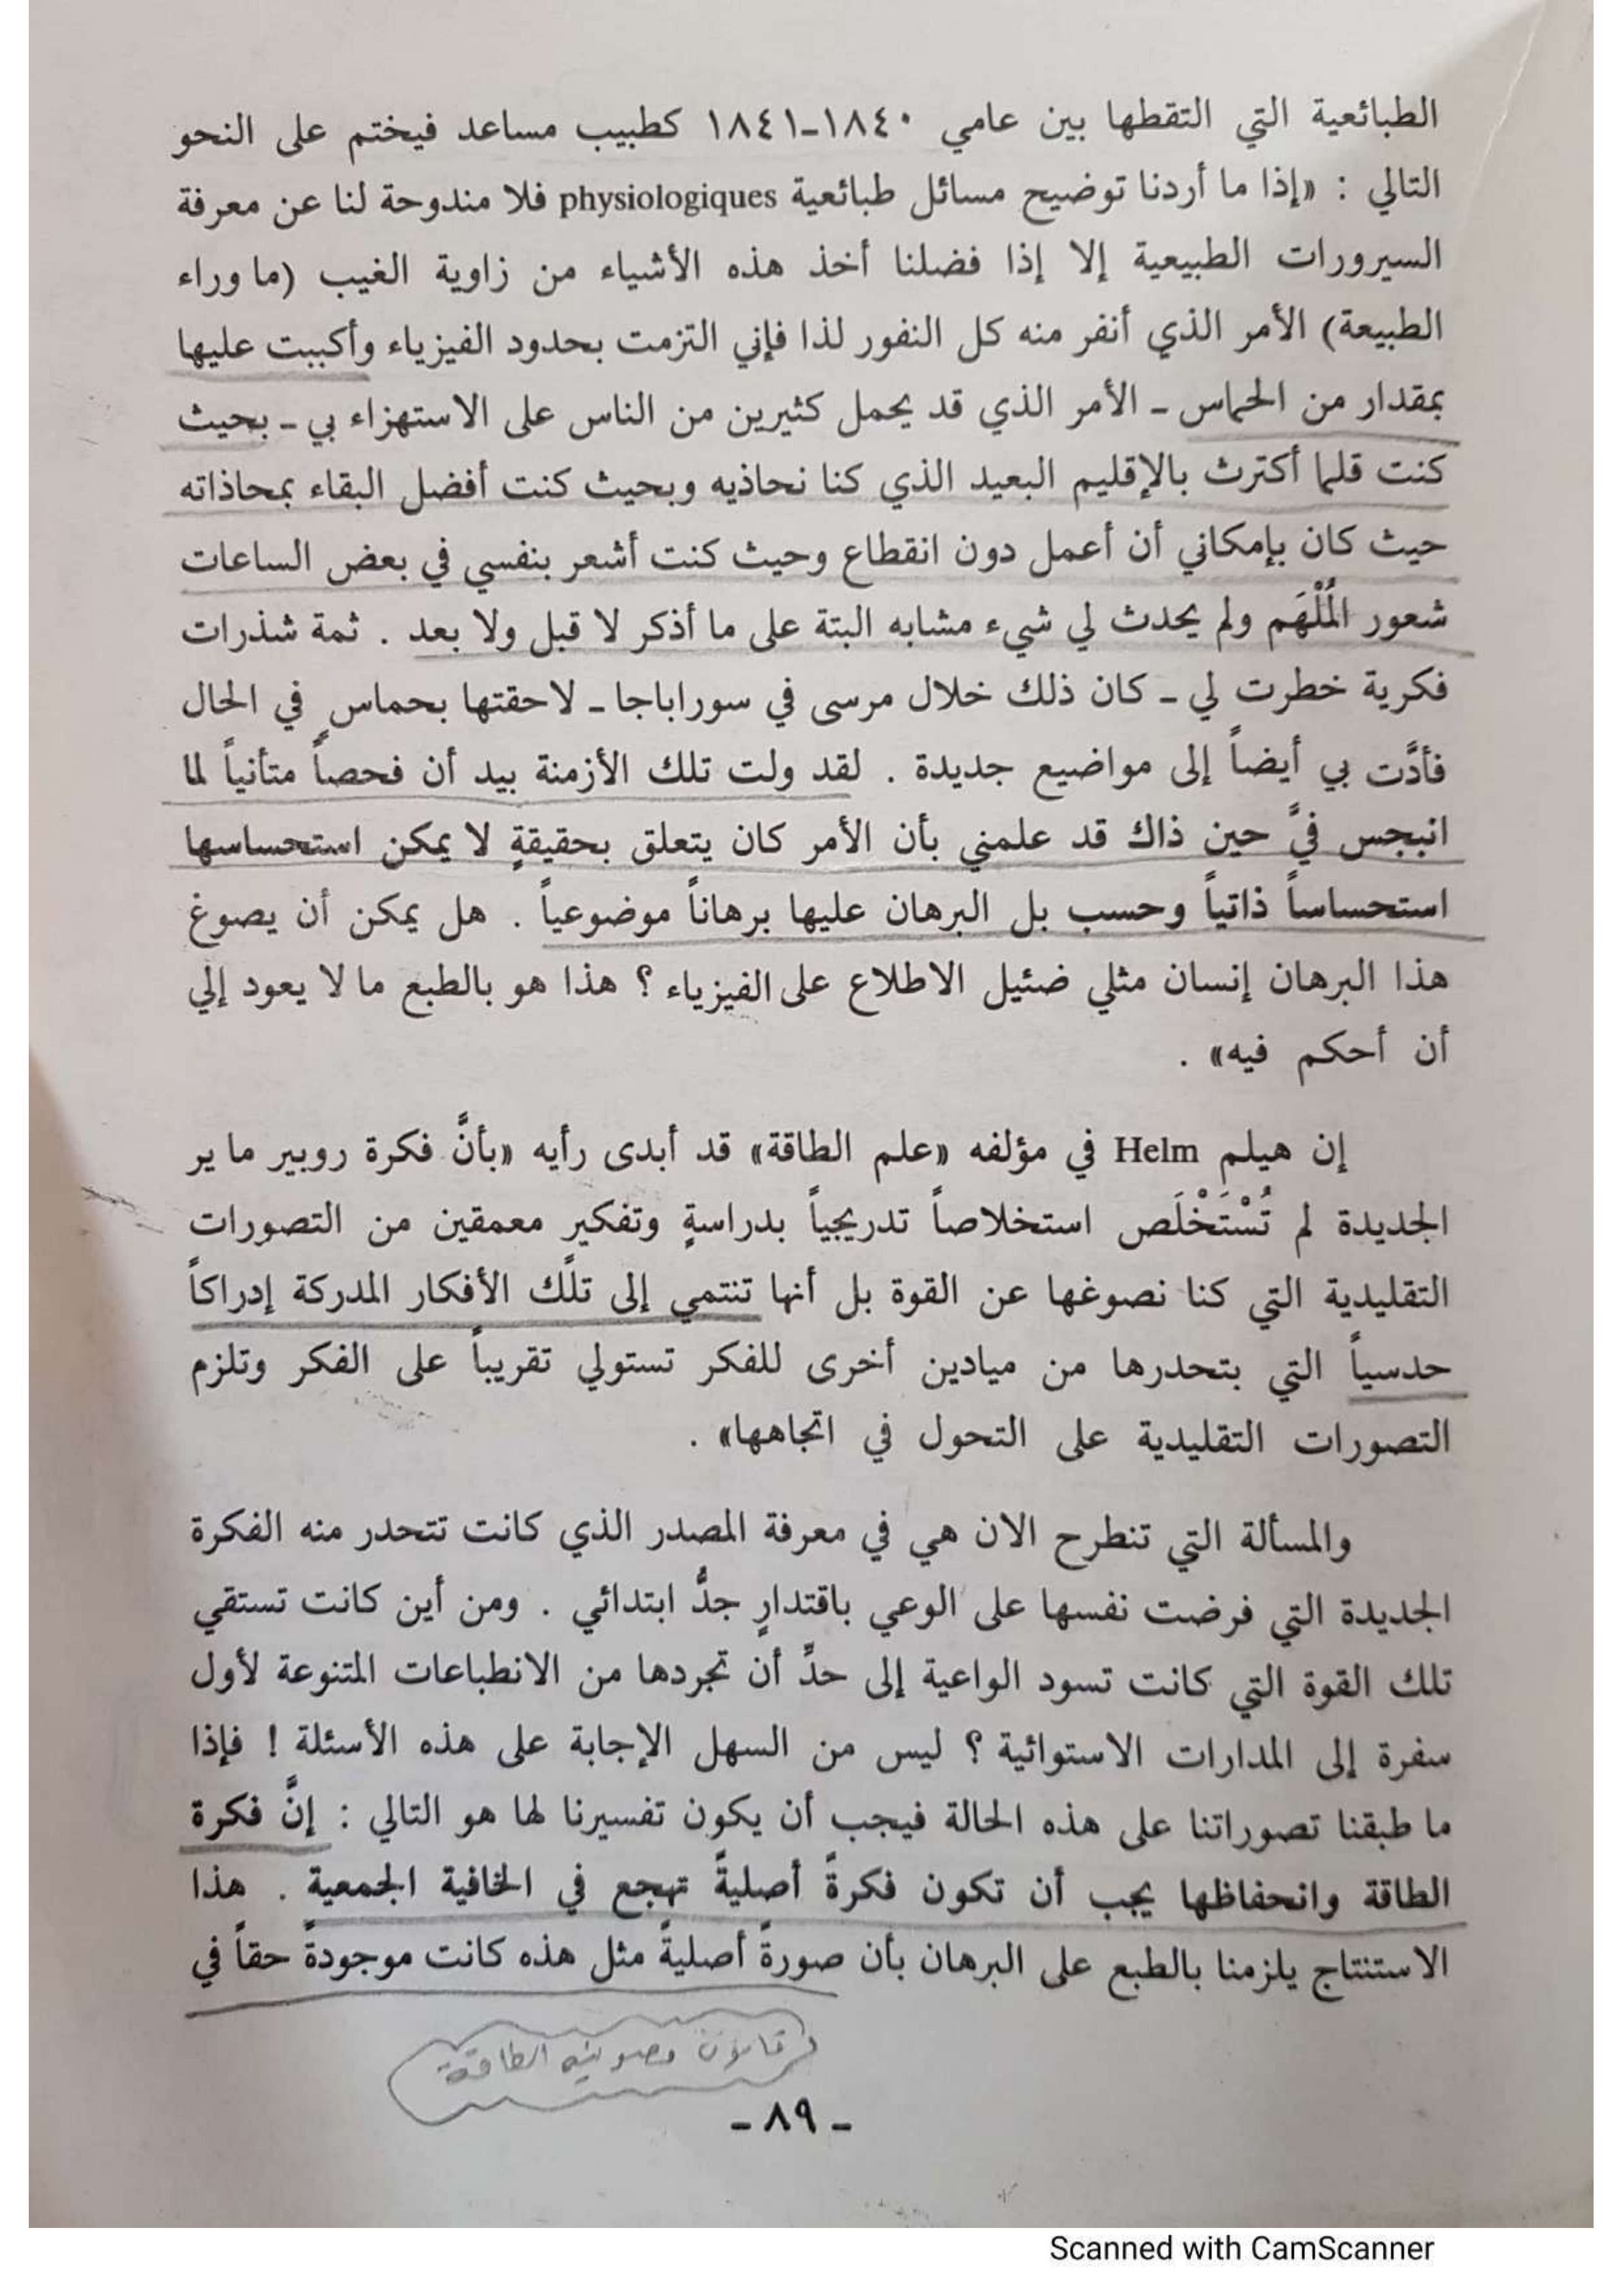 الطبائعية التي التقطها بين عامي ١٨٤٠-١٨٤١ كطبيب مساعد فيختم على النحو
التالي : «إذا ما أردنا توضيح مسائل طبائعية physiologiques فلا مندوحة لنا عن معرفة
السيرورات الطبيعية إلا إذا فضلنا أخذ هذه الأشياء من زاوية الغيب (ما وراء
الطبيعة) الأمر الذي أنفر منه كل النفور لذا فإني التزمت بحدود الفيزياء وأكببت عليها
بمقدار من الحماس - الأمر الذي قد يحمل كثيرين من الناس على الاستهزاء بي - بحيث
كنت قلما أكترث بالإقليم البعيد الذي كنا نحاذيه وبحيث كنت أفضل البقاء بمحاذاته
حيث كان بإمكاني أن أعمل دون انقطاع وحيث كنت أشعر بنفسي في بعض الساعات
شعور المُلْهَم ولم يحدث لي شيء مشابه البتة على ما أذكر لا قبل ولا بعد . ثمة شذرات
فكرية خطرت لي - كان ذلك خلال مرسى في سوراباجا - لاحقتها بحماسٍ في الحال
فأدَّت بي أيضاً إلى مواضيع جديدة . لقد ولت تلك الأزمنة بيد أن فحصاً متأنياً لما
انبجس فيَّ حين ذاك قد علمني بأن الأمر كان يتعلق بحقيقةٍ لا يمكن استحساسها
استحساساً ذاتياً وحسب بل البرهان عليها برهاناً موضوعياً . هل يمكن أن يصوغ
هذا البرهان إنسان مثلي ضئيل الاطلاع على الفيزياء ؟ هذا هو بالطبع ما لا يعود إلي
أن أحكم فيه» .
إن هيلم Helm في مؤلفه «علم الطاقة» قد أبدى رأيه «بأنَّ فكرة روبير ماير
الجديدة لم تُسْتَخْلَص استخلاصاً تدريجياً بدراسةٍ وتفكير معمقين من التصورات
التقليدية التي كنا نصوغها عن القوة بل أنها تنتمي إلى تلك الأفكار المدركة إدراكاً
حدسياً التي بتحدرها من ميادين أخرى للفكر تستولي تقريباً على الفكر وتلزم
التصورات التقليدية على التحول في اتجاهها» .
والمسألة التي تنطرح الان هي في معرفة المصدر الذي كانت تتحدر منه الفكرة
الجديدة التي فرضت نفسها على الوعي باقتدارٍ جدُّ ابتدائي . ومن أين كانت تستقي
تلك القوة التي كانت تسود الواعية إلى حدِّ أن تجردها من الانطباعات المتنوعة لأول
سفرة إلى المدارات الاستوائية ؟ ليس من السهل الإجابة على هذه الأسئلة ! فإذا
ما طبقنا تصوراتنا على هذه الحالة فيجب أن يكون تفسيرنا لها هو التالي : إنَّ فكرة
الطاقة وانحفاظها يجب أن تكون فكرةً أصليةً تهجع في الخافية الجمعية . هذا
الاستنتاج يلزمنا بالطبع على البرهان بأن صورةً أصليةً مثل هذه كانت موجودةً حقاً في
قانون مصونية الطاقة
- ٨٩ -
Scanned with CamScanner